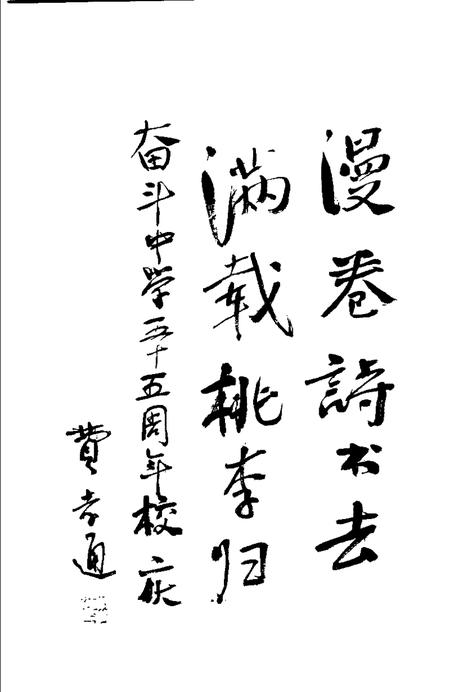 漫卷詩书去
满载桃李归
奋斗中学五十五周年校庆
費孝通